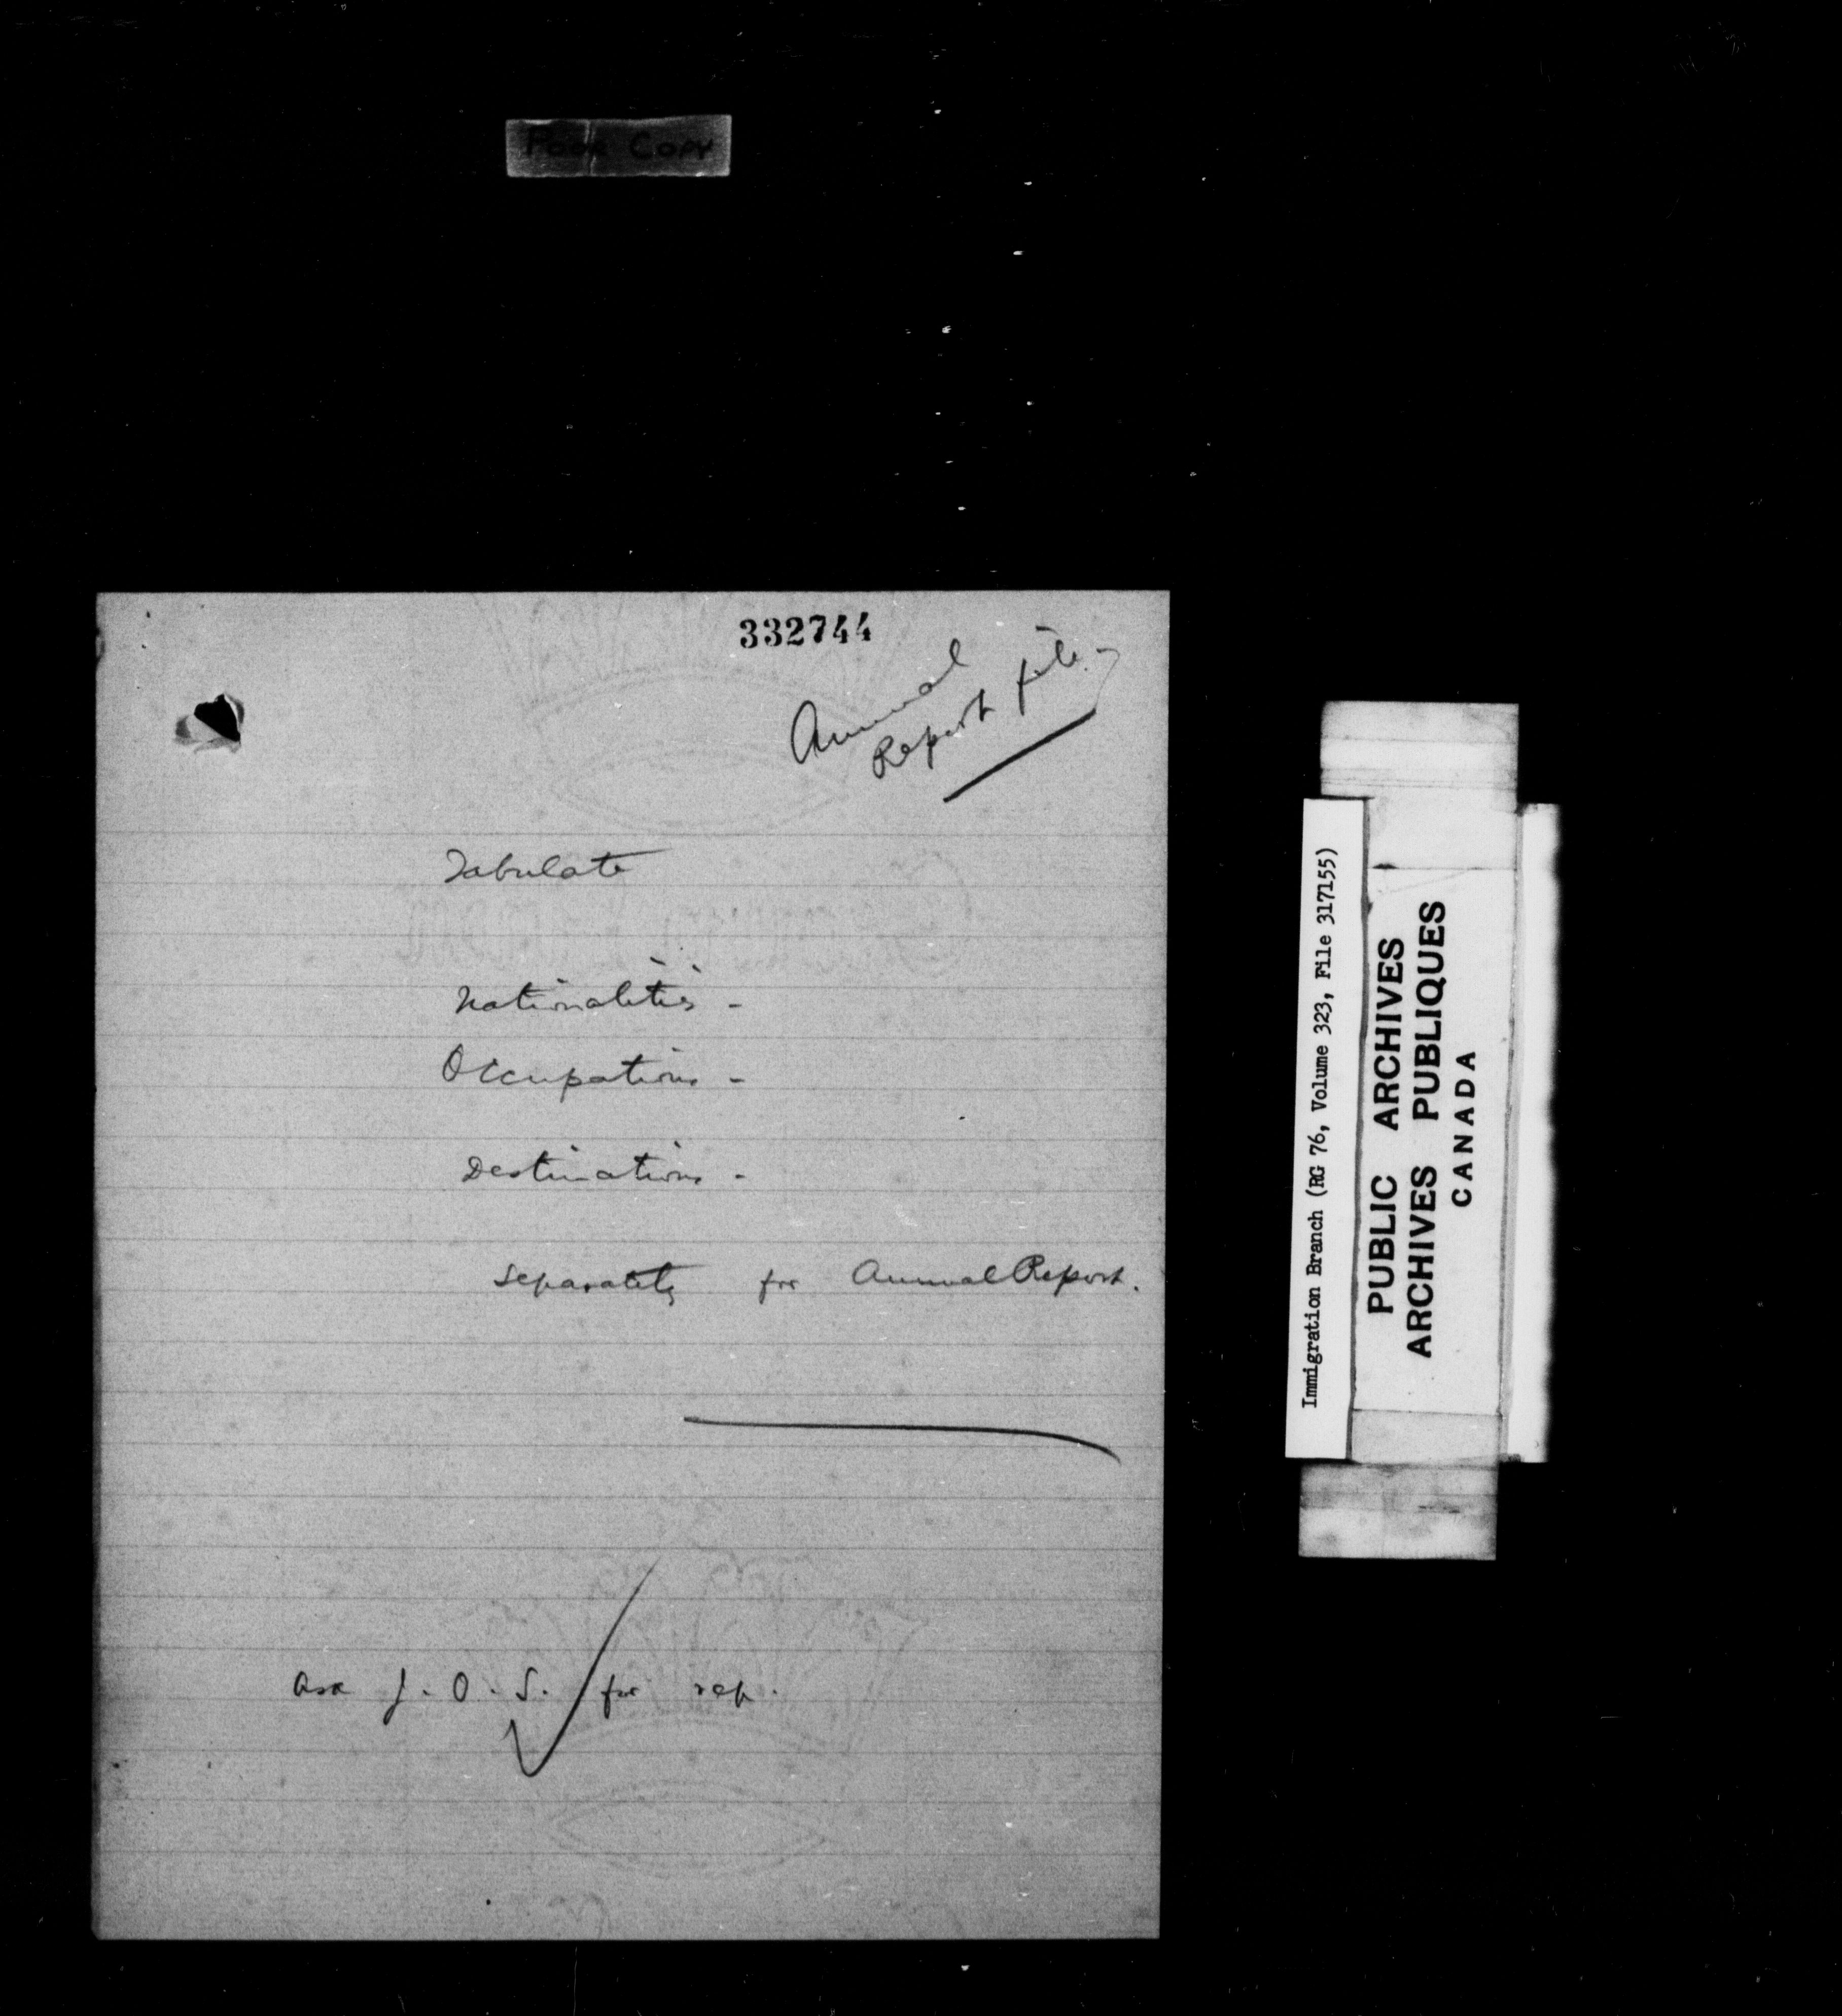 Poor Copy
332744
Annual
Report file -
Tabulate
Nationalities -
Occupations -
Destinations -
Separately for Annual Report.
Ask J. O. S. for rep.
Immigration Branch (RG 76, Volume 323, File 317155)
PUBLIC ARCHIVES
ARCHIVES PUBLIQUES
CANADA